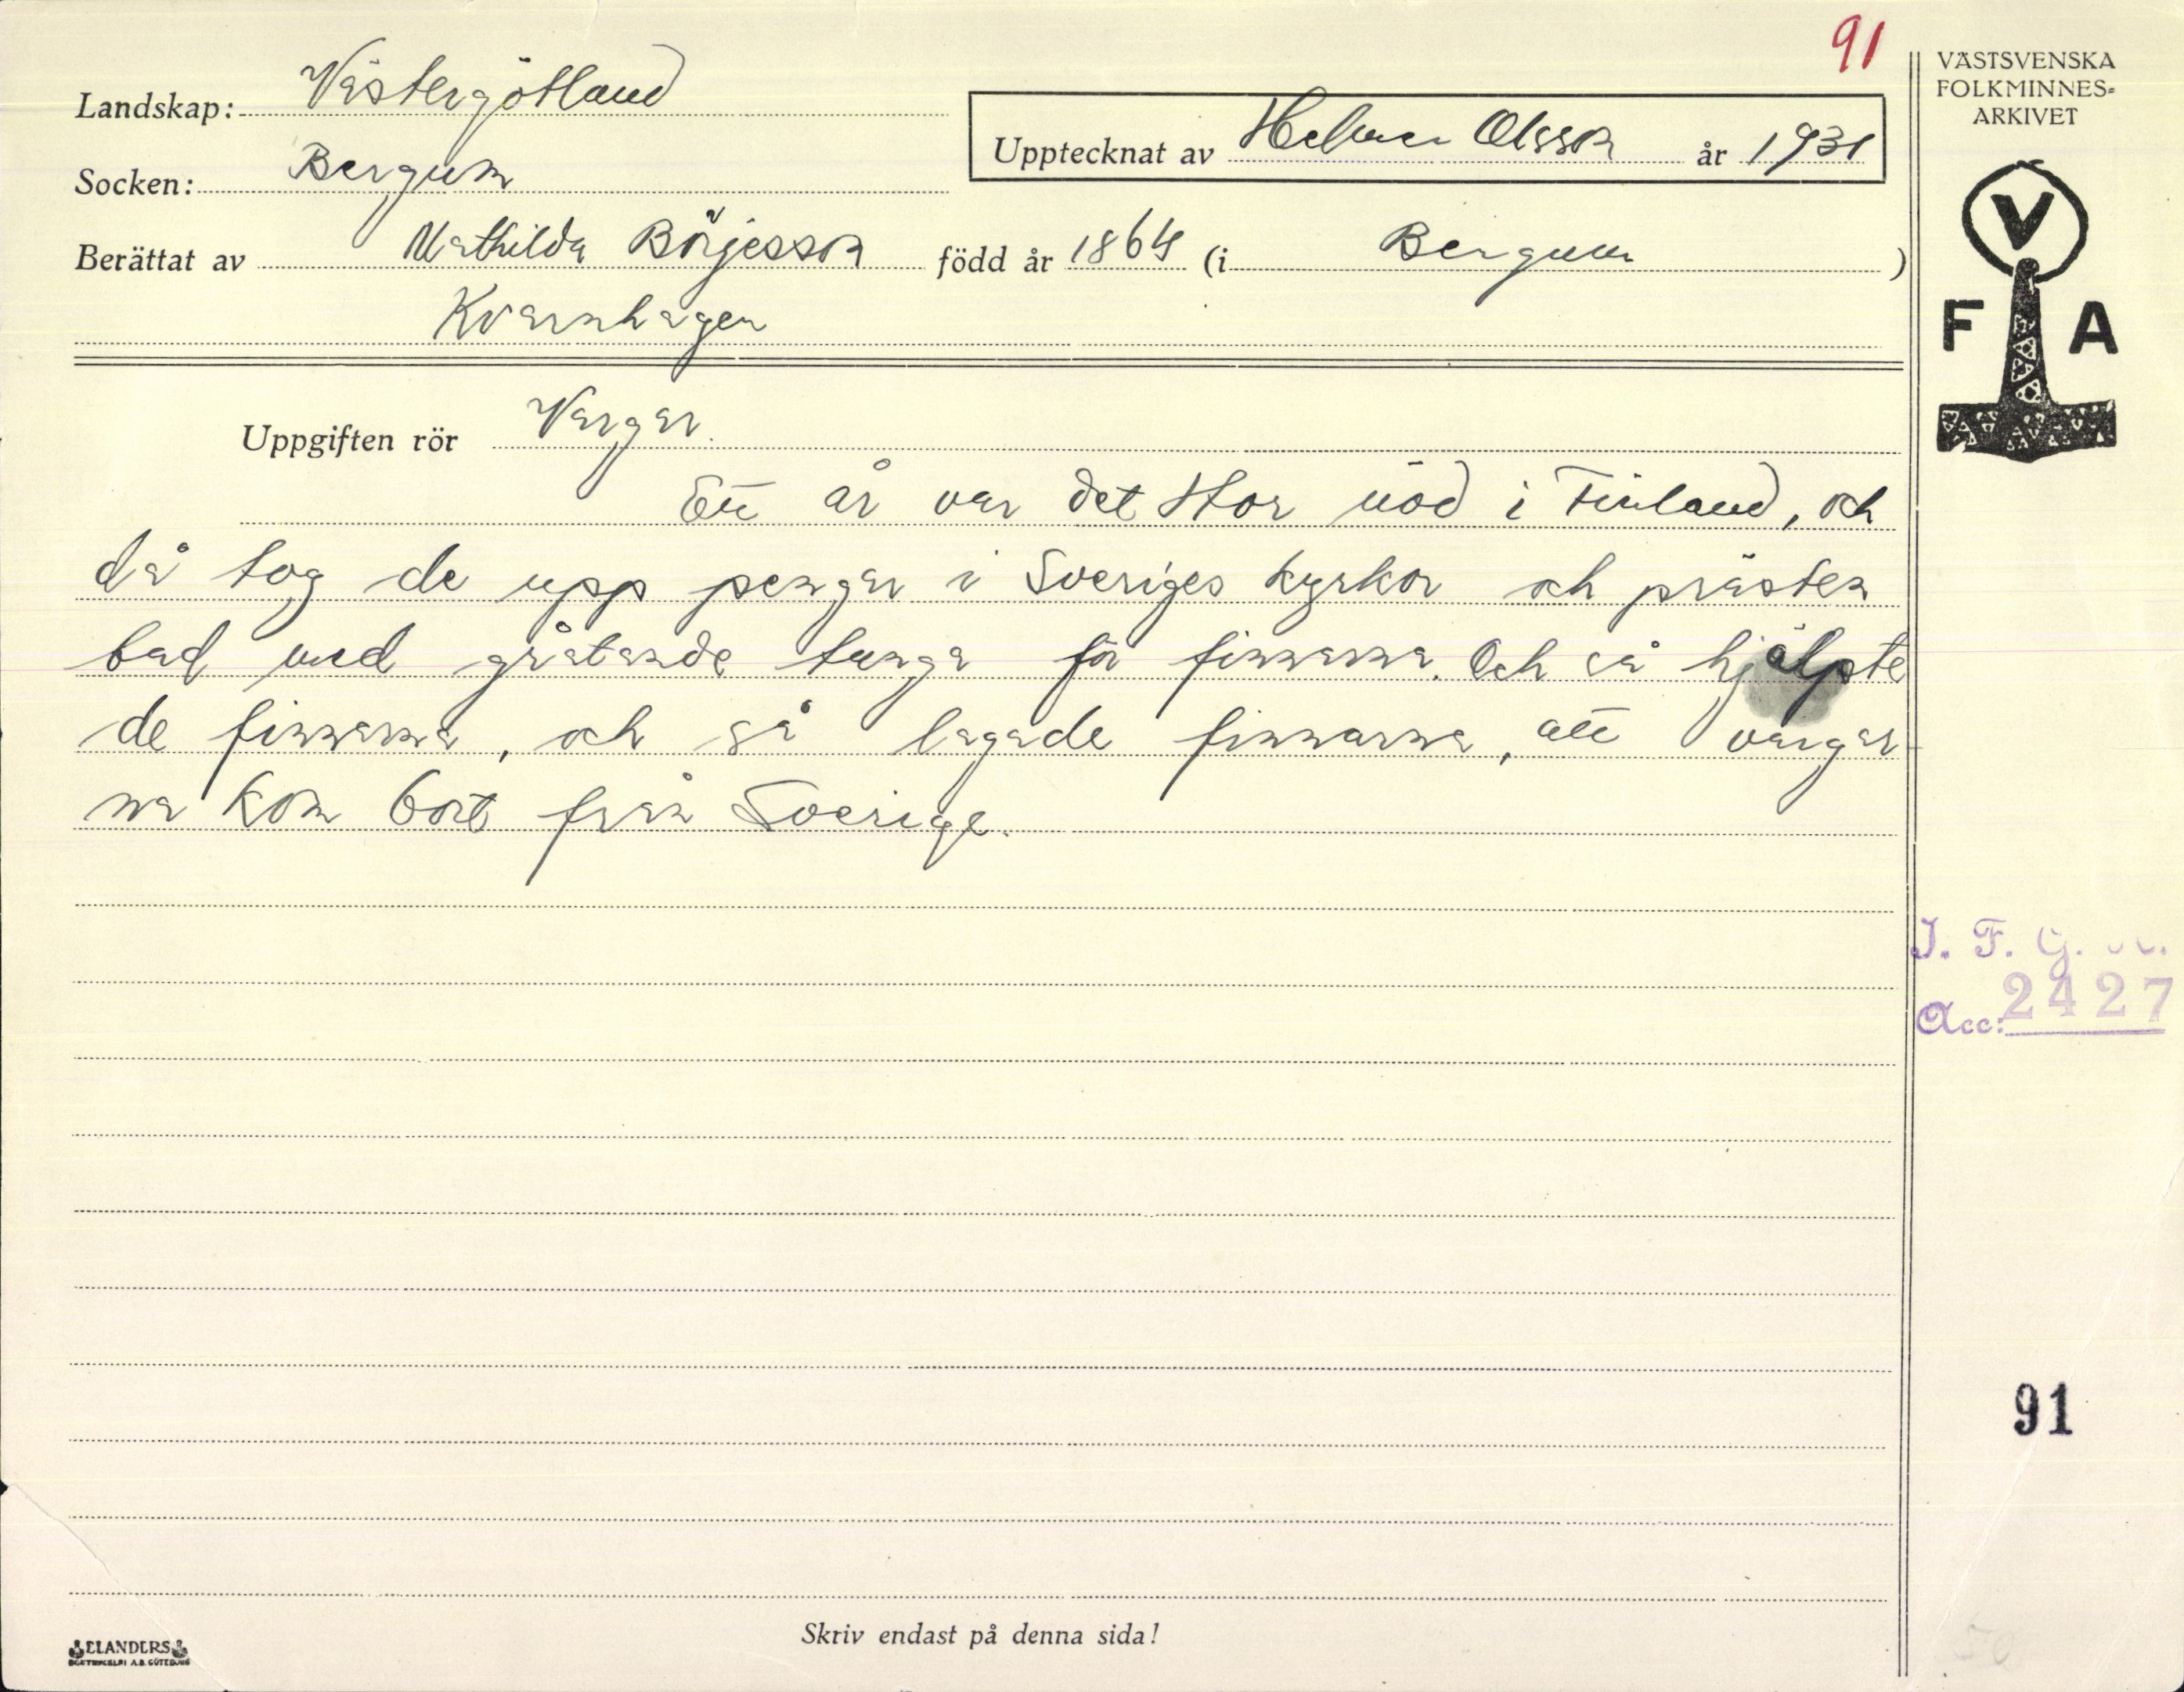 91
Landskap: Västergötland
Socken: Bergum
Upptecknat av Helmer Olsson år 1931
Berättat av Mathilda Börjesson född år 1864 (i Bergum )
Kvarnhagen
VÄSTSVENSKA
FOLKMINNES-
ARKIVET
V
F A
Uppgiften rör Vargar.
Ett år var det stor nöd i Finland, och
då tog de upp pengar i Sveriges kyrkor och prästen
bad med gråtande tunga för finnarna. Och så hjälpte
de finnarna, och så lagade finnarna, att vargar
na kom bort från Sverige.
I. F. G.
Acc: 2427
91
Skriv endast på denna sida!
ELANDERS
BOKTRYCKERI A.B. GÖTEBORG